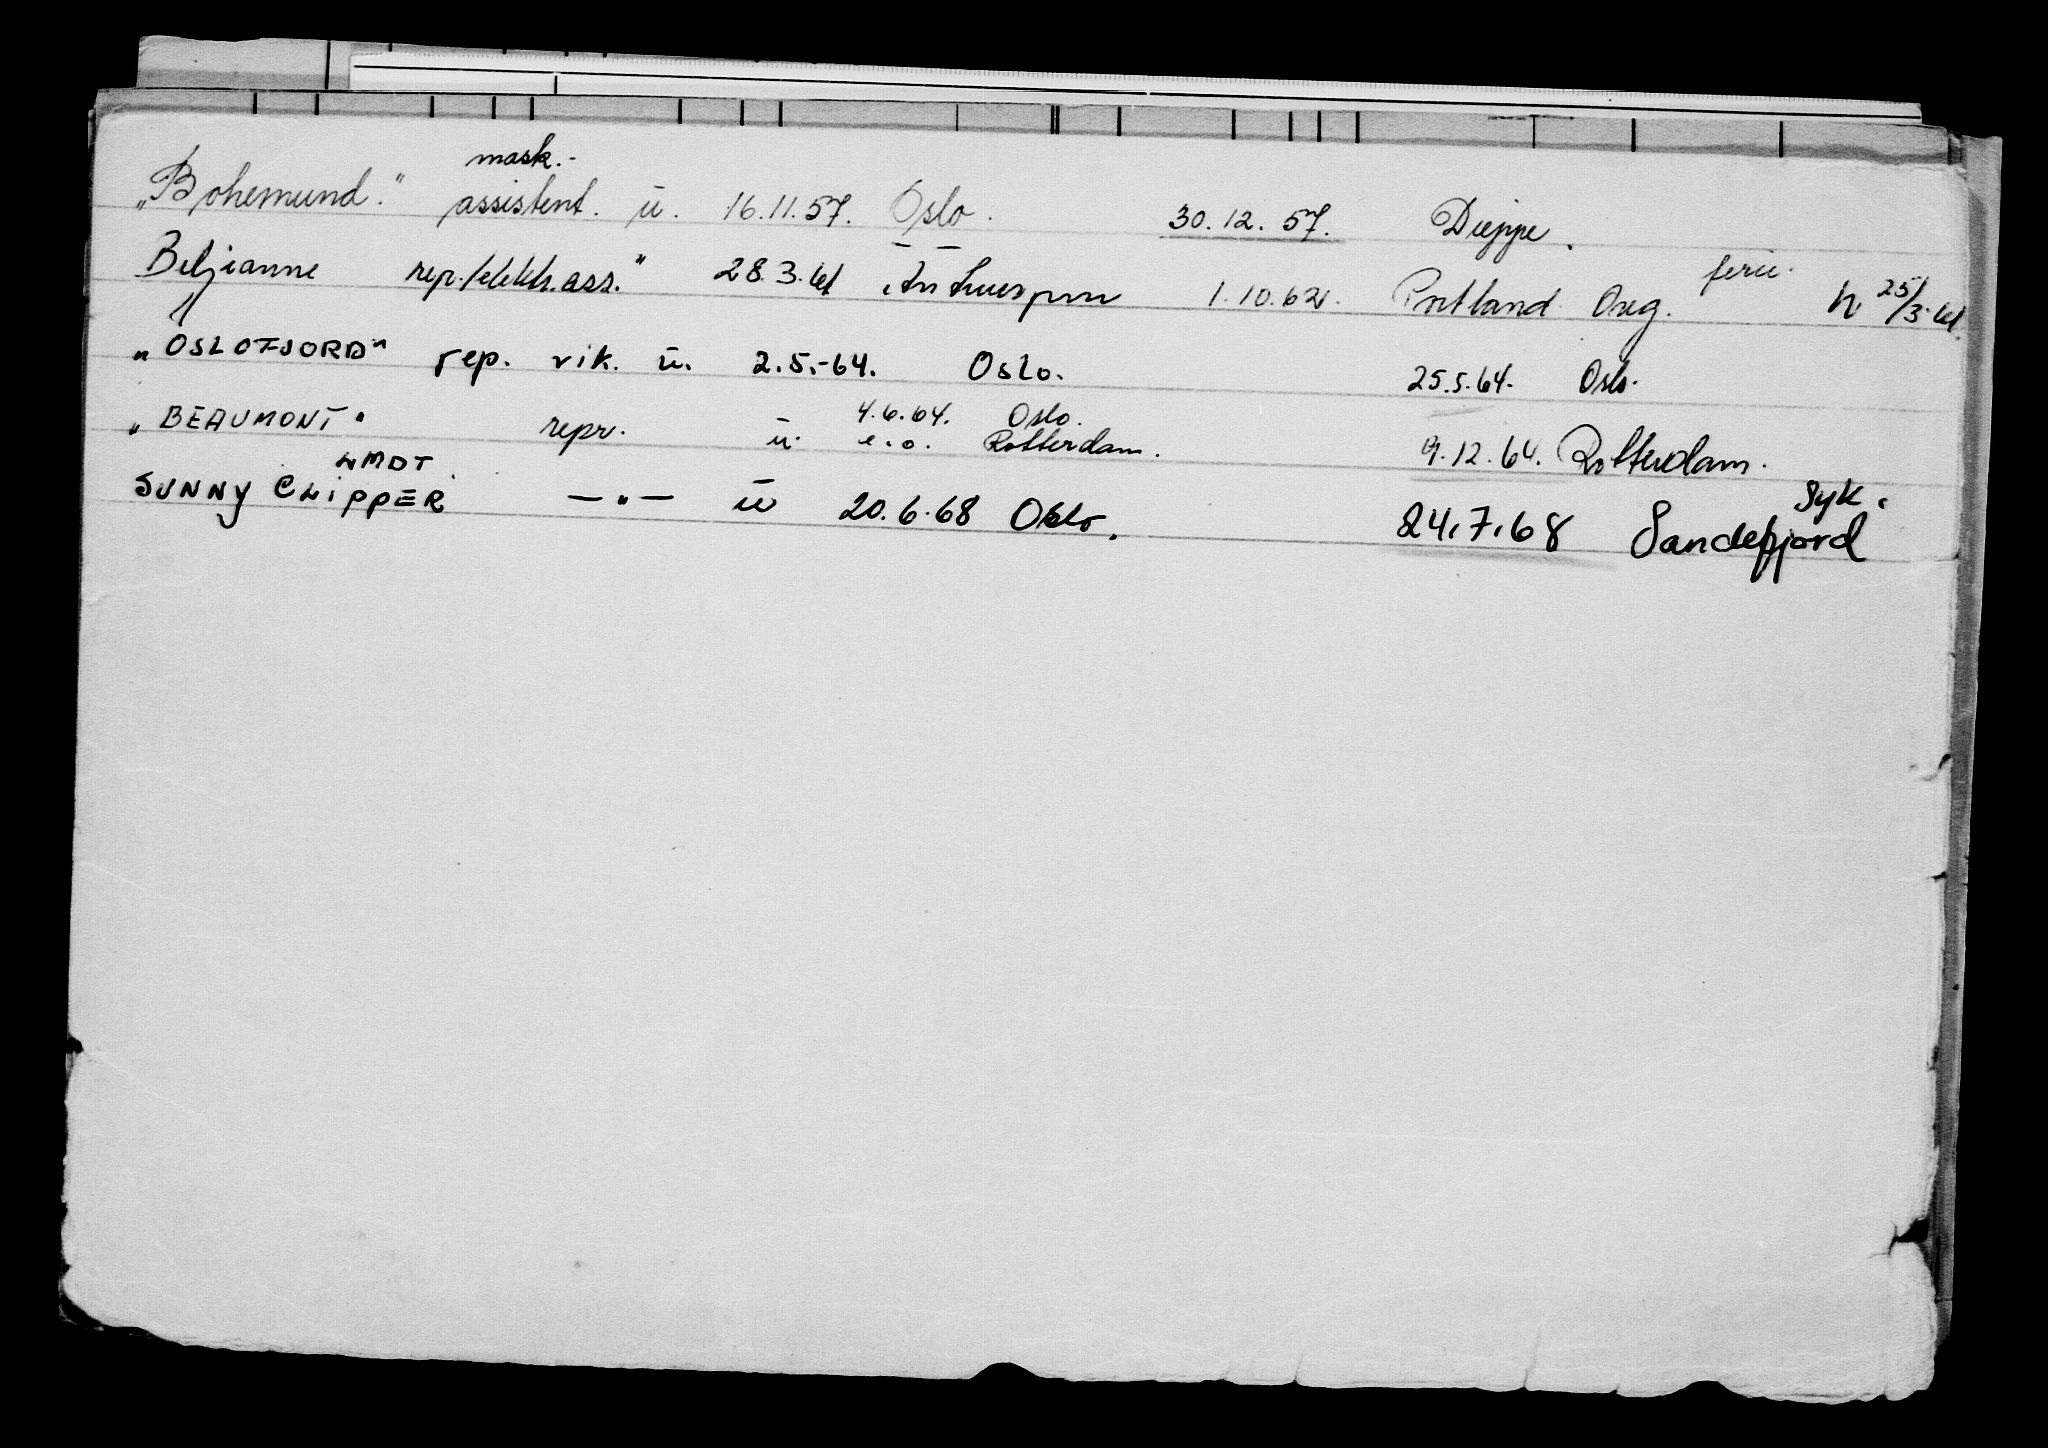 mask.-
„Bohemund." assistent. ū. 16.11.57. Oslo. 30.12.57. Dieppe.
Beljeanne rep./elektr.ass." 28.3.61 Antwerpen 1.10.62. Portland Oreg. ferie. n 25/3.61
„OSLOFJORD" rep. vik. ū. 2.5.-64. Oslo. 25.5.64. Oslo.
4.6.64. Oslo.
„BEAUMONT" repr. ū. e.o. Rotterdam. 9.12.64. Rotterdam.
LMDT
SUNNY CLIPPER —"— ū 20.6.68 Oslo. 24.7.68 Sandefjord syk.